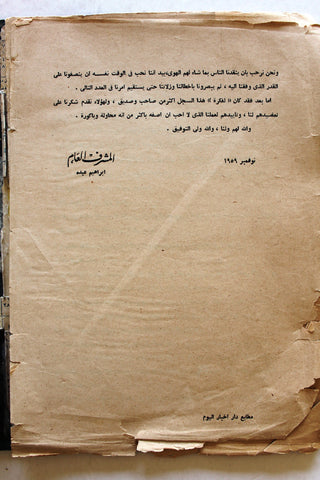 ونحن نرحب بان ينقدنا الناس بما شاء لهم الهوى، بيد اننا نحب في الوقت نفسه ان ينصفونا على
القدر الذي وفقنا اليه ، ثم يبصرونا بأخطائنا وزلاتنا حتى يستقيم امرنا في العدد التالى .
اما بعد فقد كان « لفكرة » هذا السجل اكثر من صاحب وصديق ، ولهؤلاء نقدم شكرنا على
تعضيدهم لنا ، وتأييدهم لعملنا الذى لا احب ان اصفه باكثر من انه محاولة وباكورة .
والله لهم ولنا ، والله ولى التوفيق .
نوفمبر ١٩٥٩
المشرف العام
ابراهيم عبده
مطابع دار اخبار اليوم